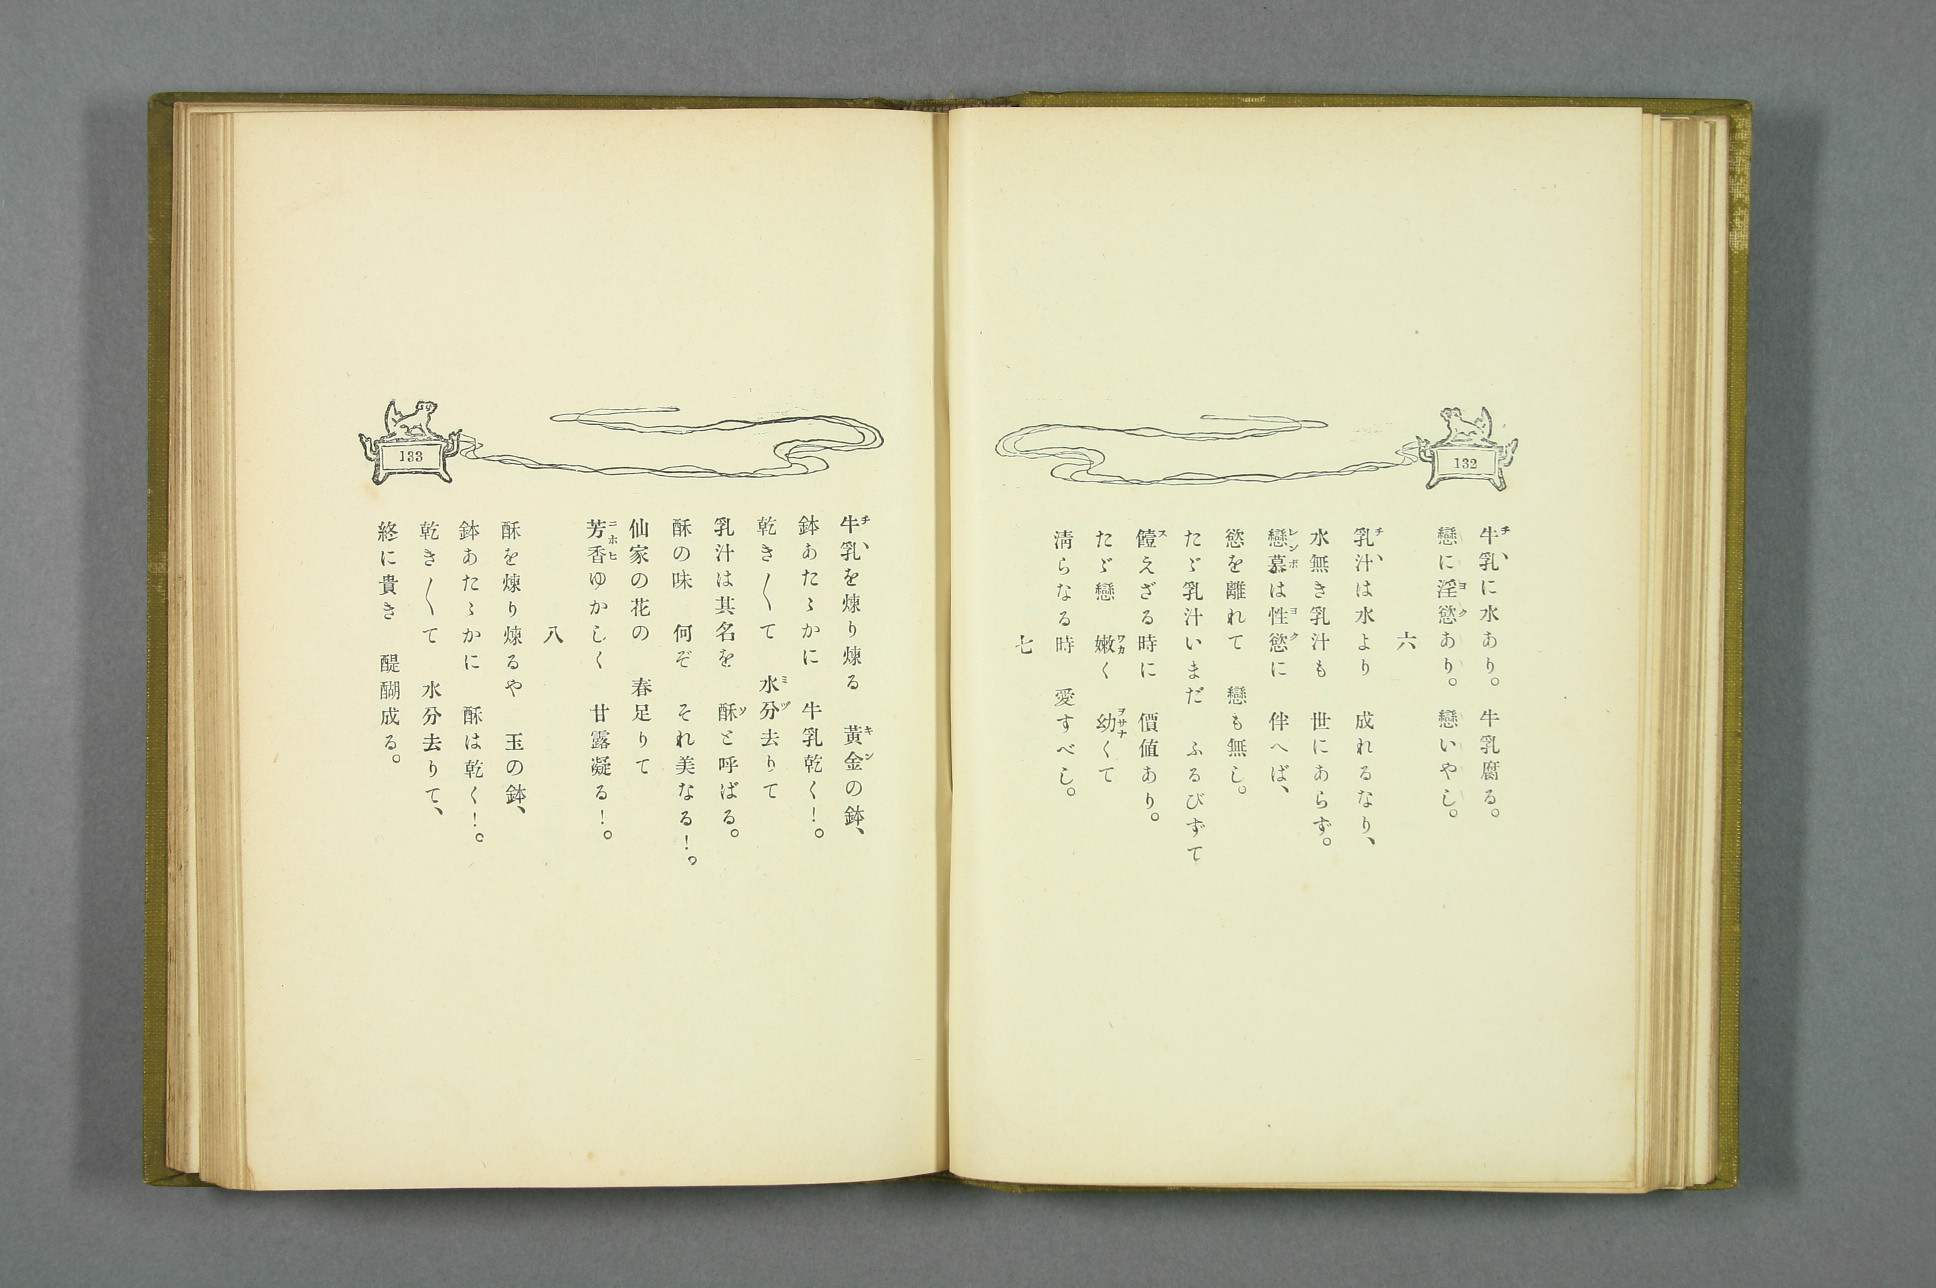 132
牛乳に水あり。牛乳腐る。
戀に淫慾あり。戀いやし。
六
乳汁は水より　成れるなり、
水無き乳汁も　世にあらず。
戀慕は性慾に　伴へば、
慾を離れて　戀も無し。
たゞ乳汁いまだ　ふるびずて
饐えざる時に　價値あり。
たゞ戀　嫩く　幼くて
淸らなる時　愛すべし。
七
133
牛乳を煉り煉る　黃金の鉢、
鉢あたゝかに　牛乳乾く！。
乾き〱て　水分去りて
乳汁は其名を　酥と呼ばる。
酥の味　何ぞ　それ美なる！。
仙家の花の　春足りて
芳香ゆかしく　甘露凝る！。
八
酥を煉り煉るや　玉の鉢、
鉢あたゝかに　酥は乾く！。
乾き〱て　水分去りて、
終に貴き　醍醐成る。